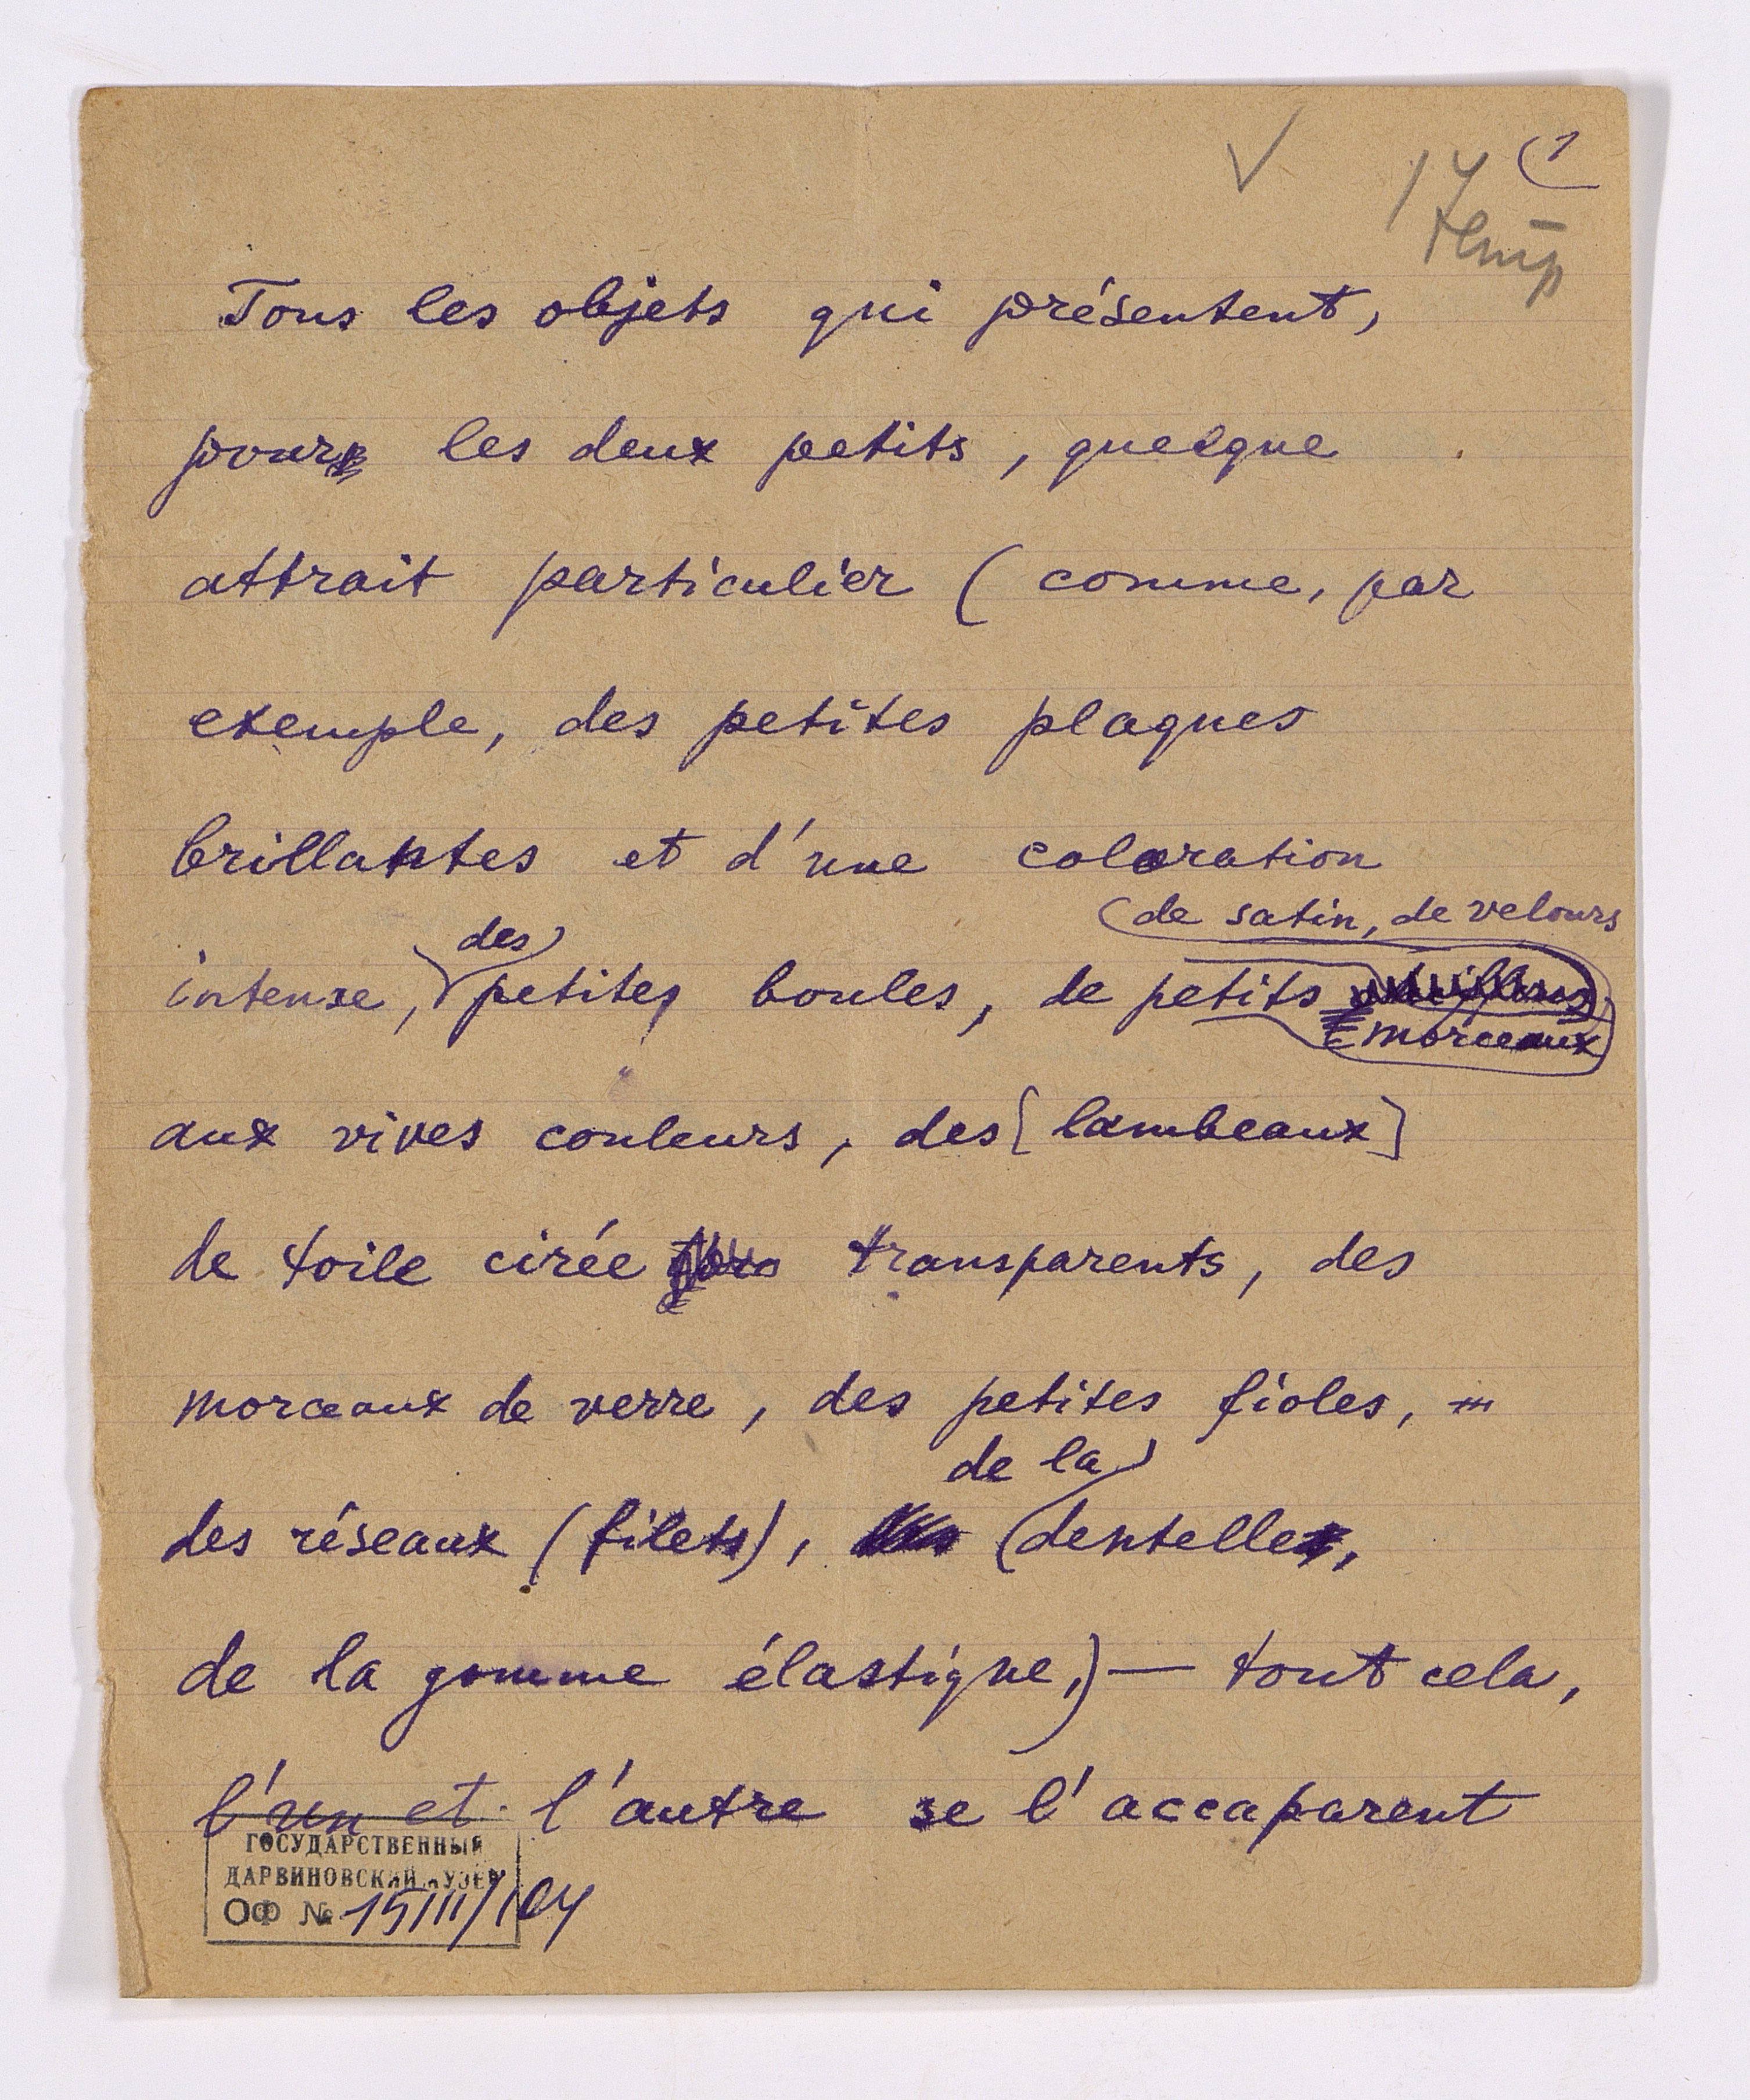 ✓ 17 (1
Tous les objets qui présentent,
pour les deux petits, quelque
attrait particulier (comme, par
exemple, des petites plaques
brillantes et d'une coloration
de satin, de velours
des
intense, petites boules, de petits
morceaux
aux vives couleurs, des [lambeaux]
de toile cirée transparents, des
morceaux de verre, des petites fioles,
de la
des réseaux (filets), dentelle,
de la gomme élastique,) — tout cela,
l'un et l'autre se l'accaparent
ГОСУДАРСТВЕННЫЙ
ДАРВИНОВСКИЙ МУЗЕЙ
ОФ №